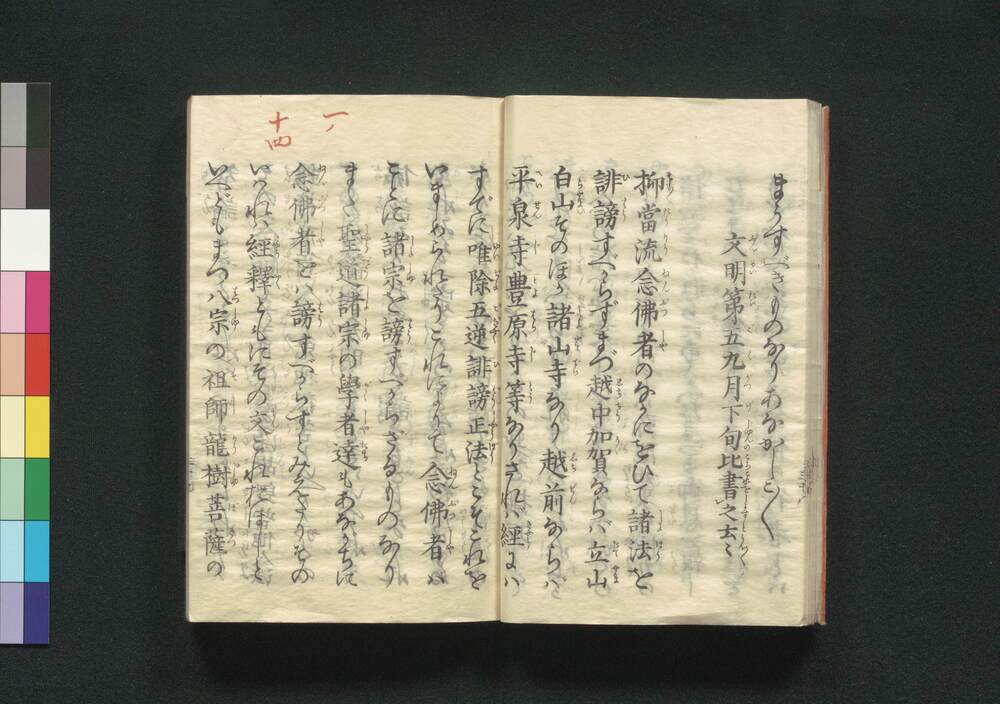 まうすべきものなりあなかしこ〳〵
文明第五九月下旬比書之云々
抑當流念佛者のなかにをひて諸法を
誹謗すべからずまづ越中加賀ならバ立山
白山そのほか諸山寺なり越前ならバ
平泉寺豊原寺等なりされバ經にハ
すでに唯除五逆誹謗正法とこそこれを
いましめられたりこれによりて念佛者ハ
ことに諸宗を謗すべからざるものなり
また聖道諸宗の學者達もあながちに
念佛者をハ謗すべからずとみえたりその
いはれハ經釋ともにその文これおほしと
いへどもまづ八宗の祖師龍樹菩薩の
一ノ
十四